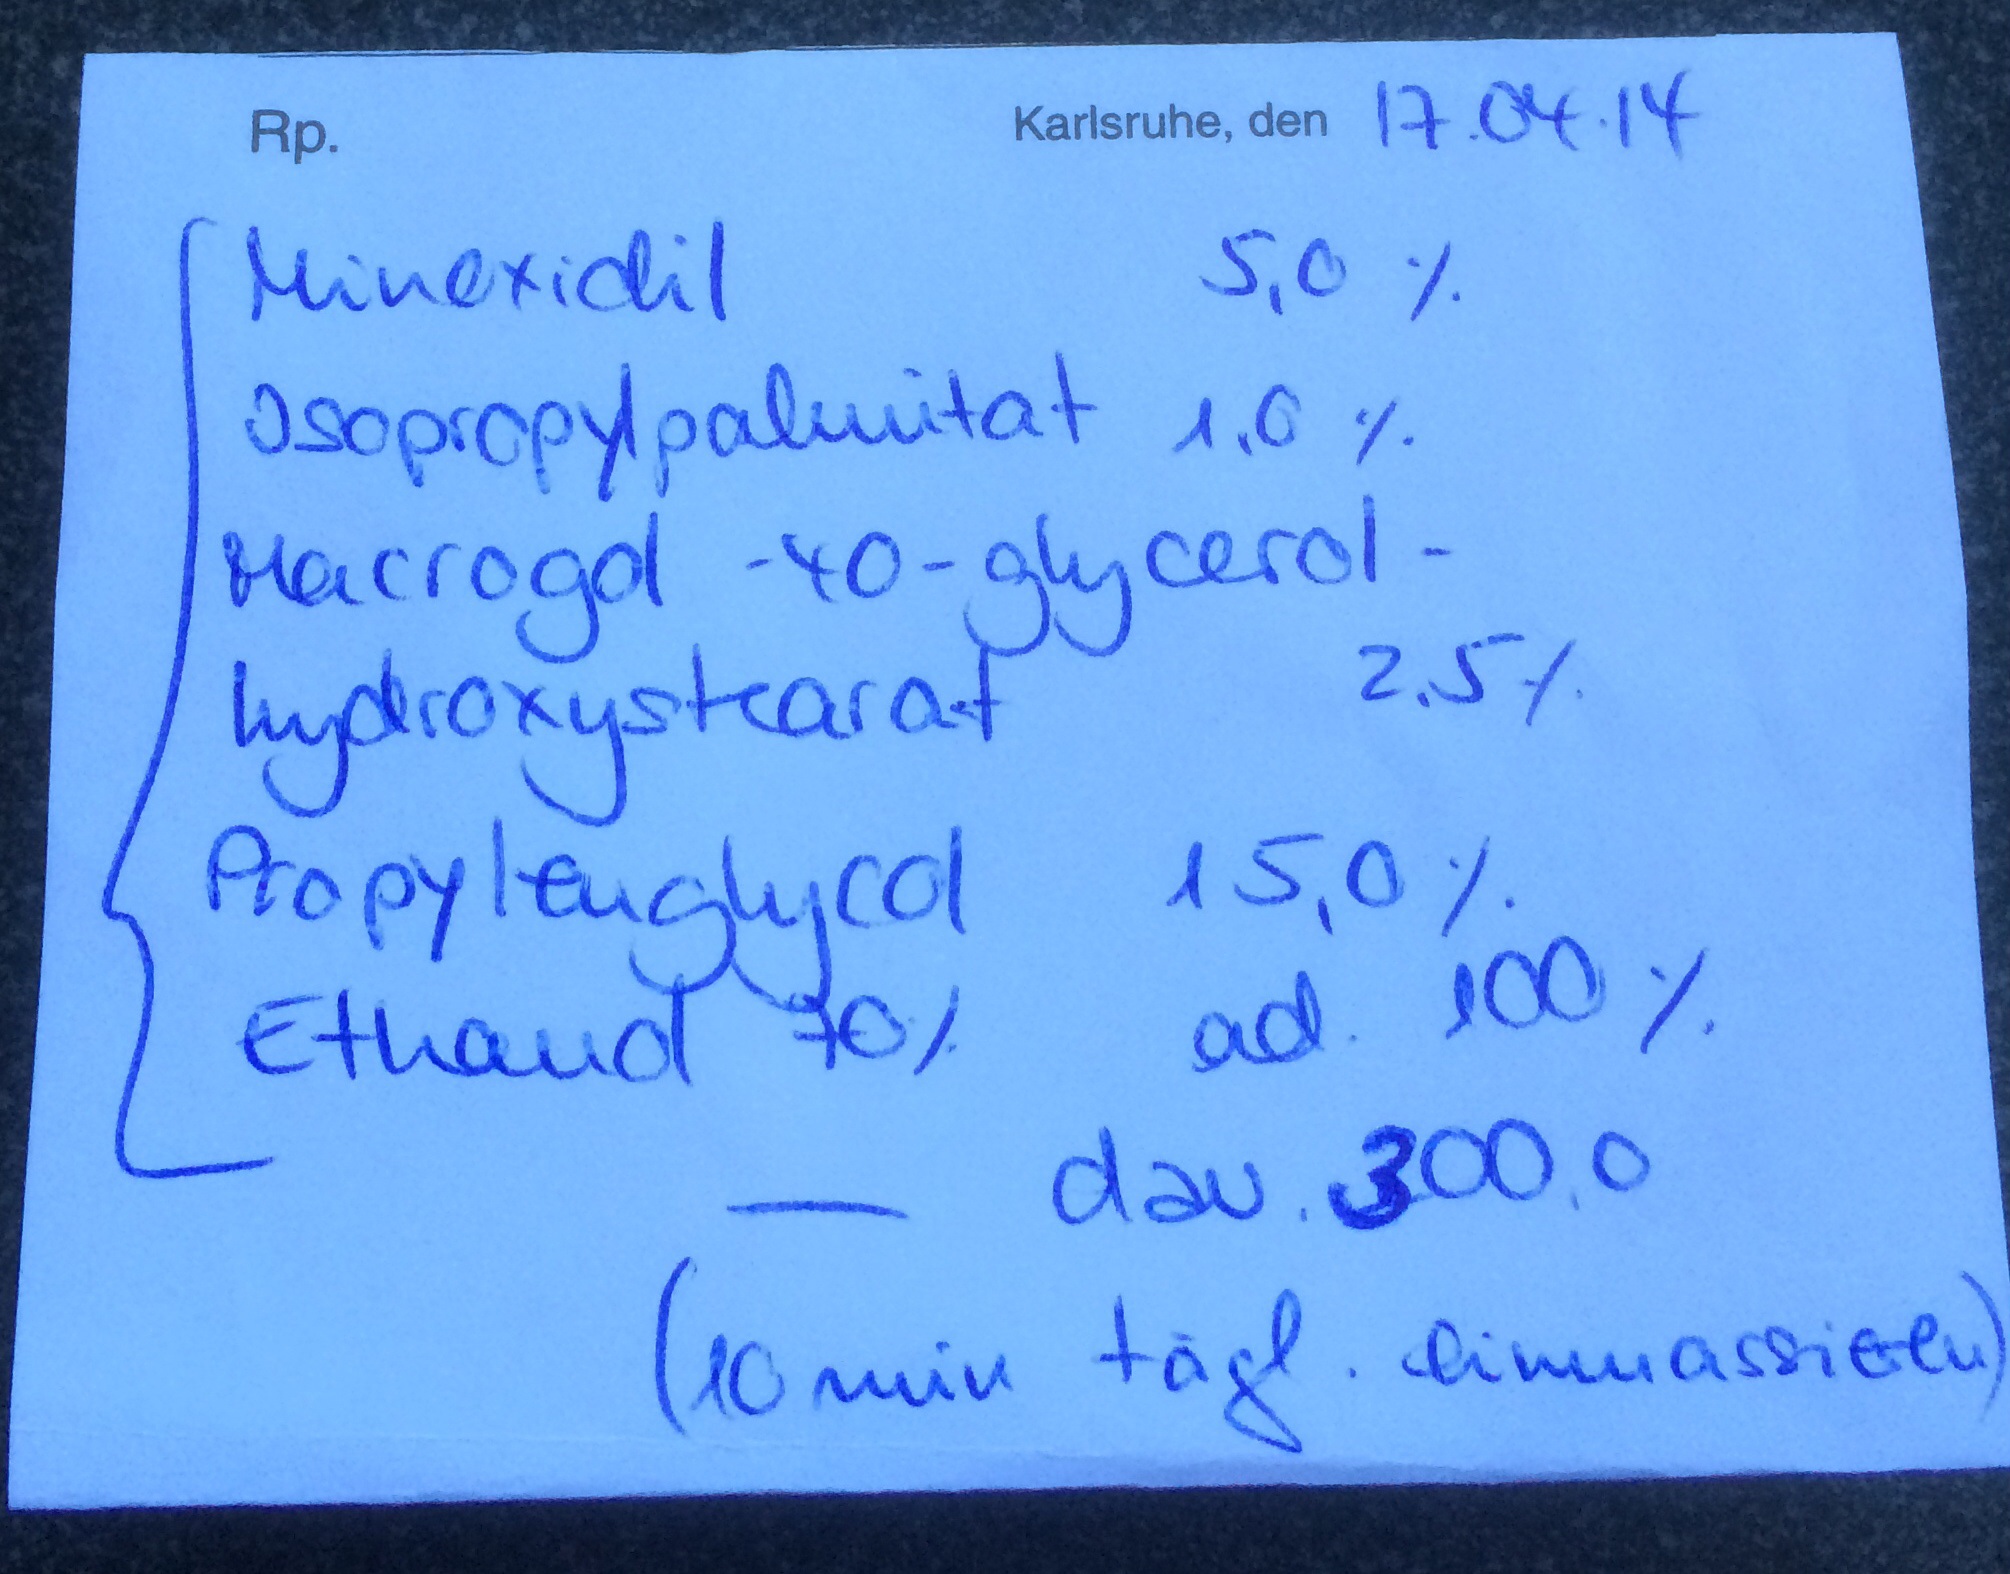 Rp. Karlsruhe, den 17.04.14
Minoxidil 5,0 %
Isopropylpalmitat 1,0 %
Macrogol -40-glycerol-
hydroxystearat 2,5%
Propylenglycol 15,0%
Ethanol 70% ad. 100%
— dav. 300,0
(10 min tägl. einmassieren)